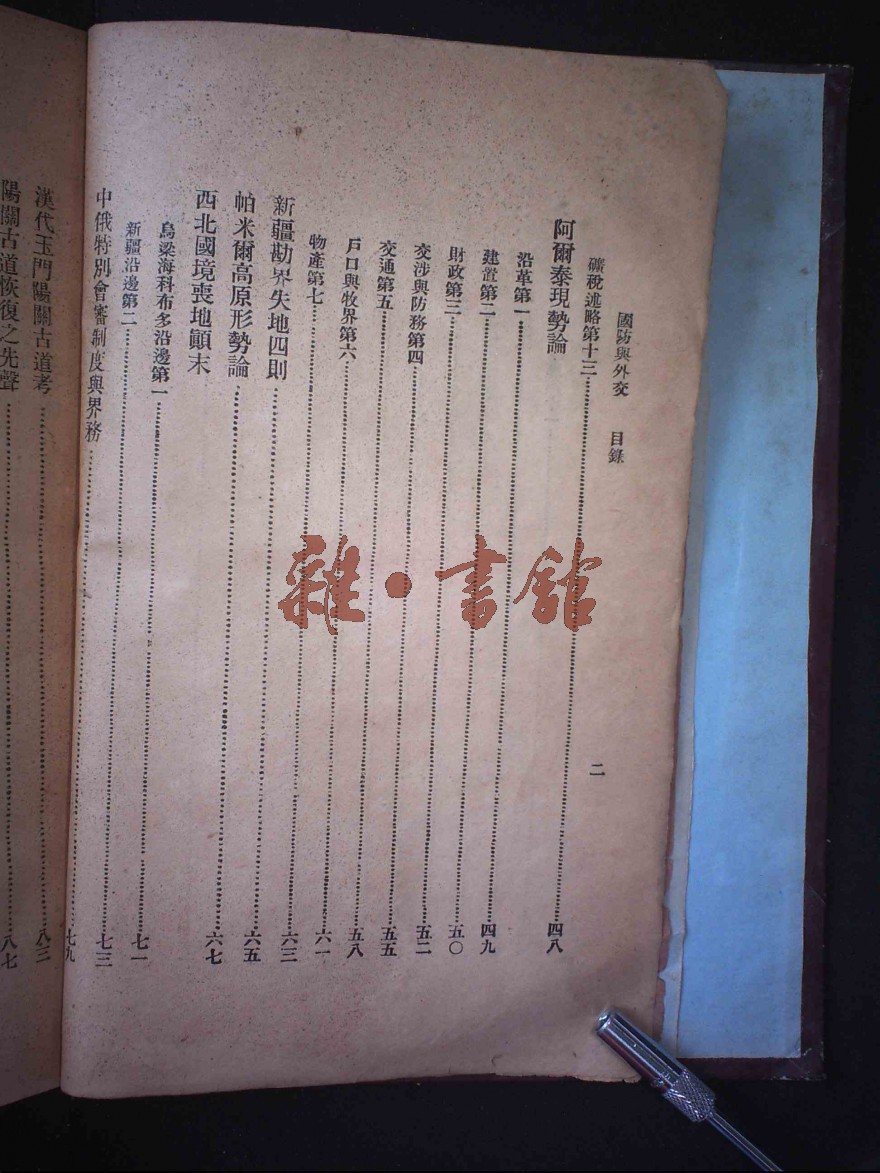 國防與外交 目錄 二
礦稅述略第十三……四八
阿爾泰現勢論
沿革第一……四九
建置第二……五〇
財政第三……五二
交涉與防務第四……五五
交通第五……五八
戶口與牧界第六……六一
物產第七……六三
新疆勘界失地四則……六五
帕米爾高原形勢論……六七
西北國境喪地顚末
烏梁海科布多沿邊第一……七一
新疆沿邊第二……七三
中俄特別會審制度與界務……七九
漢代玉門陽關古道考……八三
陽關古道恢復之先聲……八七
雜·書館